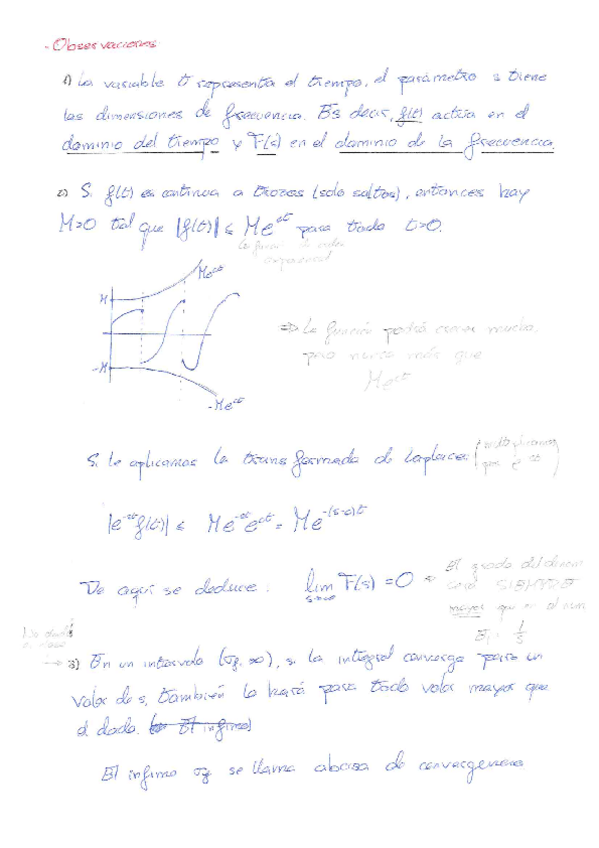 - Observaciones
1) La variable t representa el tiempo, el parámetro s tiene
las dimensiones de frecuencia. Es decir, f(t) actúa en el
dominio del tiempo y F(s) en el dominio de la frecuencia.
2) Si f(t) es continua a trozos (solo saltos), entonces hay
M>0 tal que |f(t)| ≤ Me^ct para todo t>0.
La función
exponencial
Me^ct
M
-M
-Me^ct
=> La función podrá crecer mucho,
pero nunca más que
Me^ct
Si le aplicamos la transformada de Laplace: (multiplicamos
por e^-st)
|e^-st f(t)| ≤ Me^-st e^ct = Me^-(s-c)t
De aquí se deduce: lim F(s) = 0
s→∞
El grado del denom
será SIEMPRE
mayor que el num
Ej: 1/s
3) En un intervalo (σf, ∞), si la integral converge para un
valor de s, también lo hará para todo valor mayor que
el dado. (El ínfimo)
El ínfimo σf se llama abcisa de convergencia